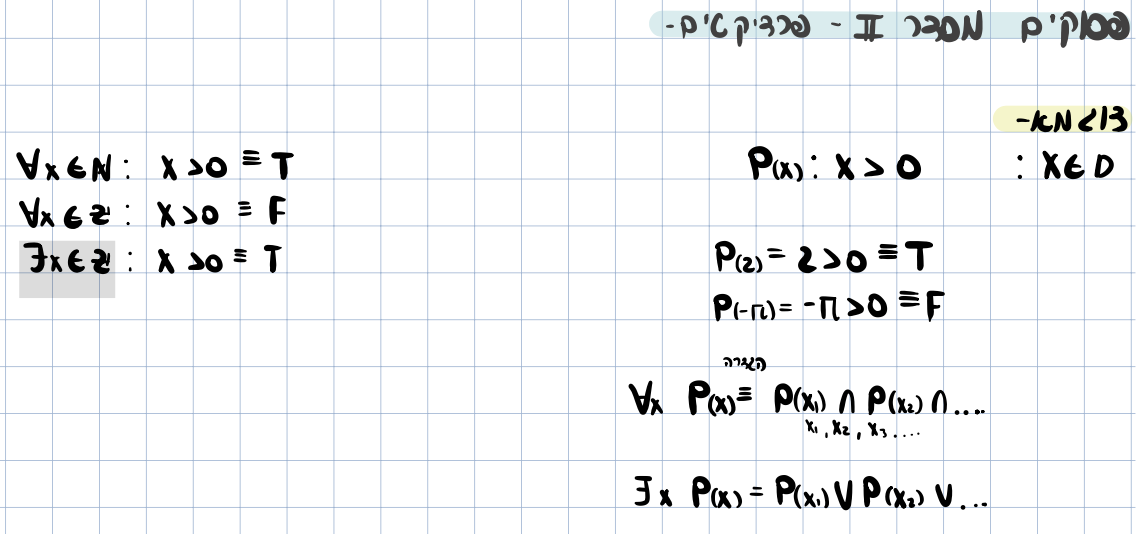 פסוקים מסדר II - פרדיקטים-
דוגמא-
x∈D :    P(x): x > 0
P(2) = 2>0 ≡ T
P(-π) = -π>0 ≡ F
הגדרה
∀x P(x) ≡ P(x₁) ∩ P(x₂) ∩ ....
x₁, x₂, x₃ ....
∃x P(x) = P(x₁) ∨ P(x₂) ∨ ...
∀x∈N : x>0 ≡ T
∀x∈Z : x>0 ≡ F
∃x∈Z : x>0 ≡ T